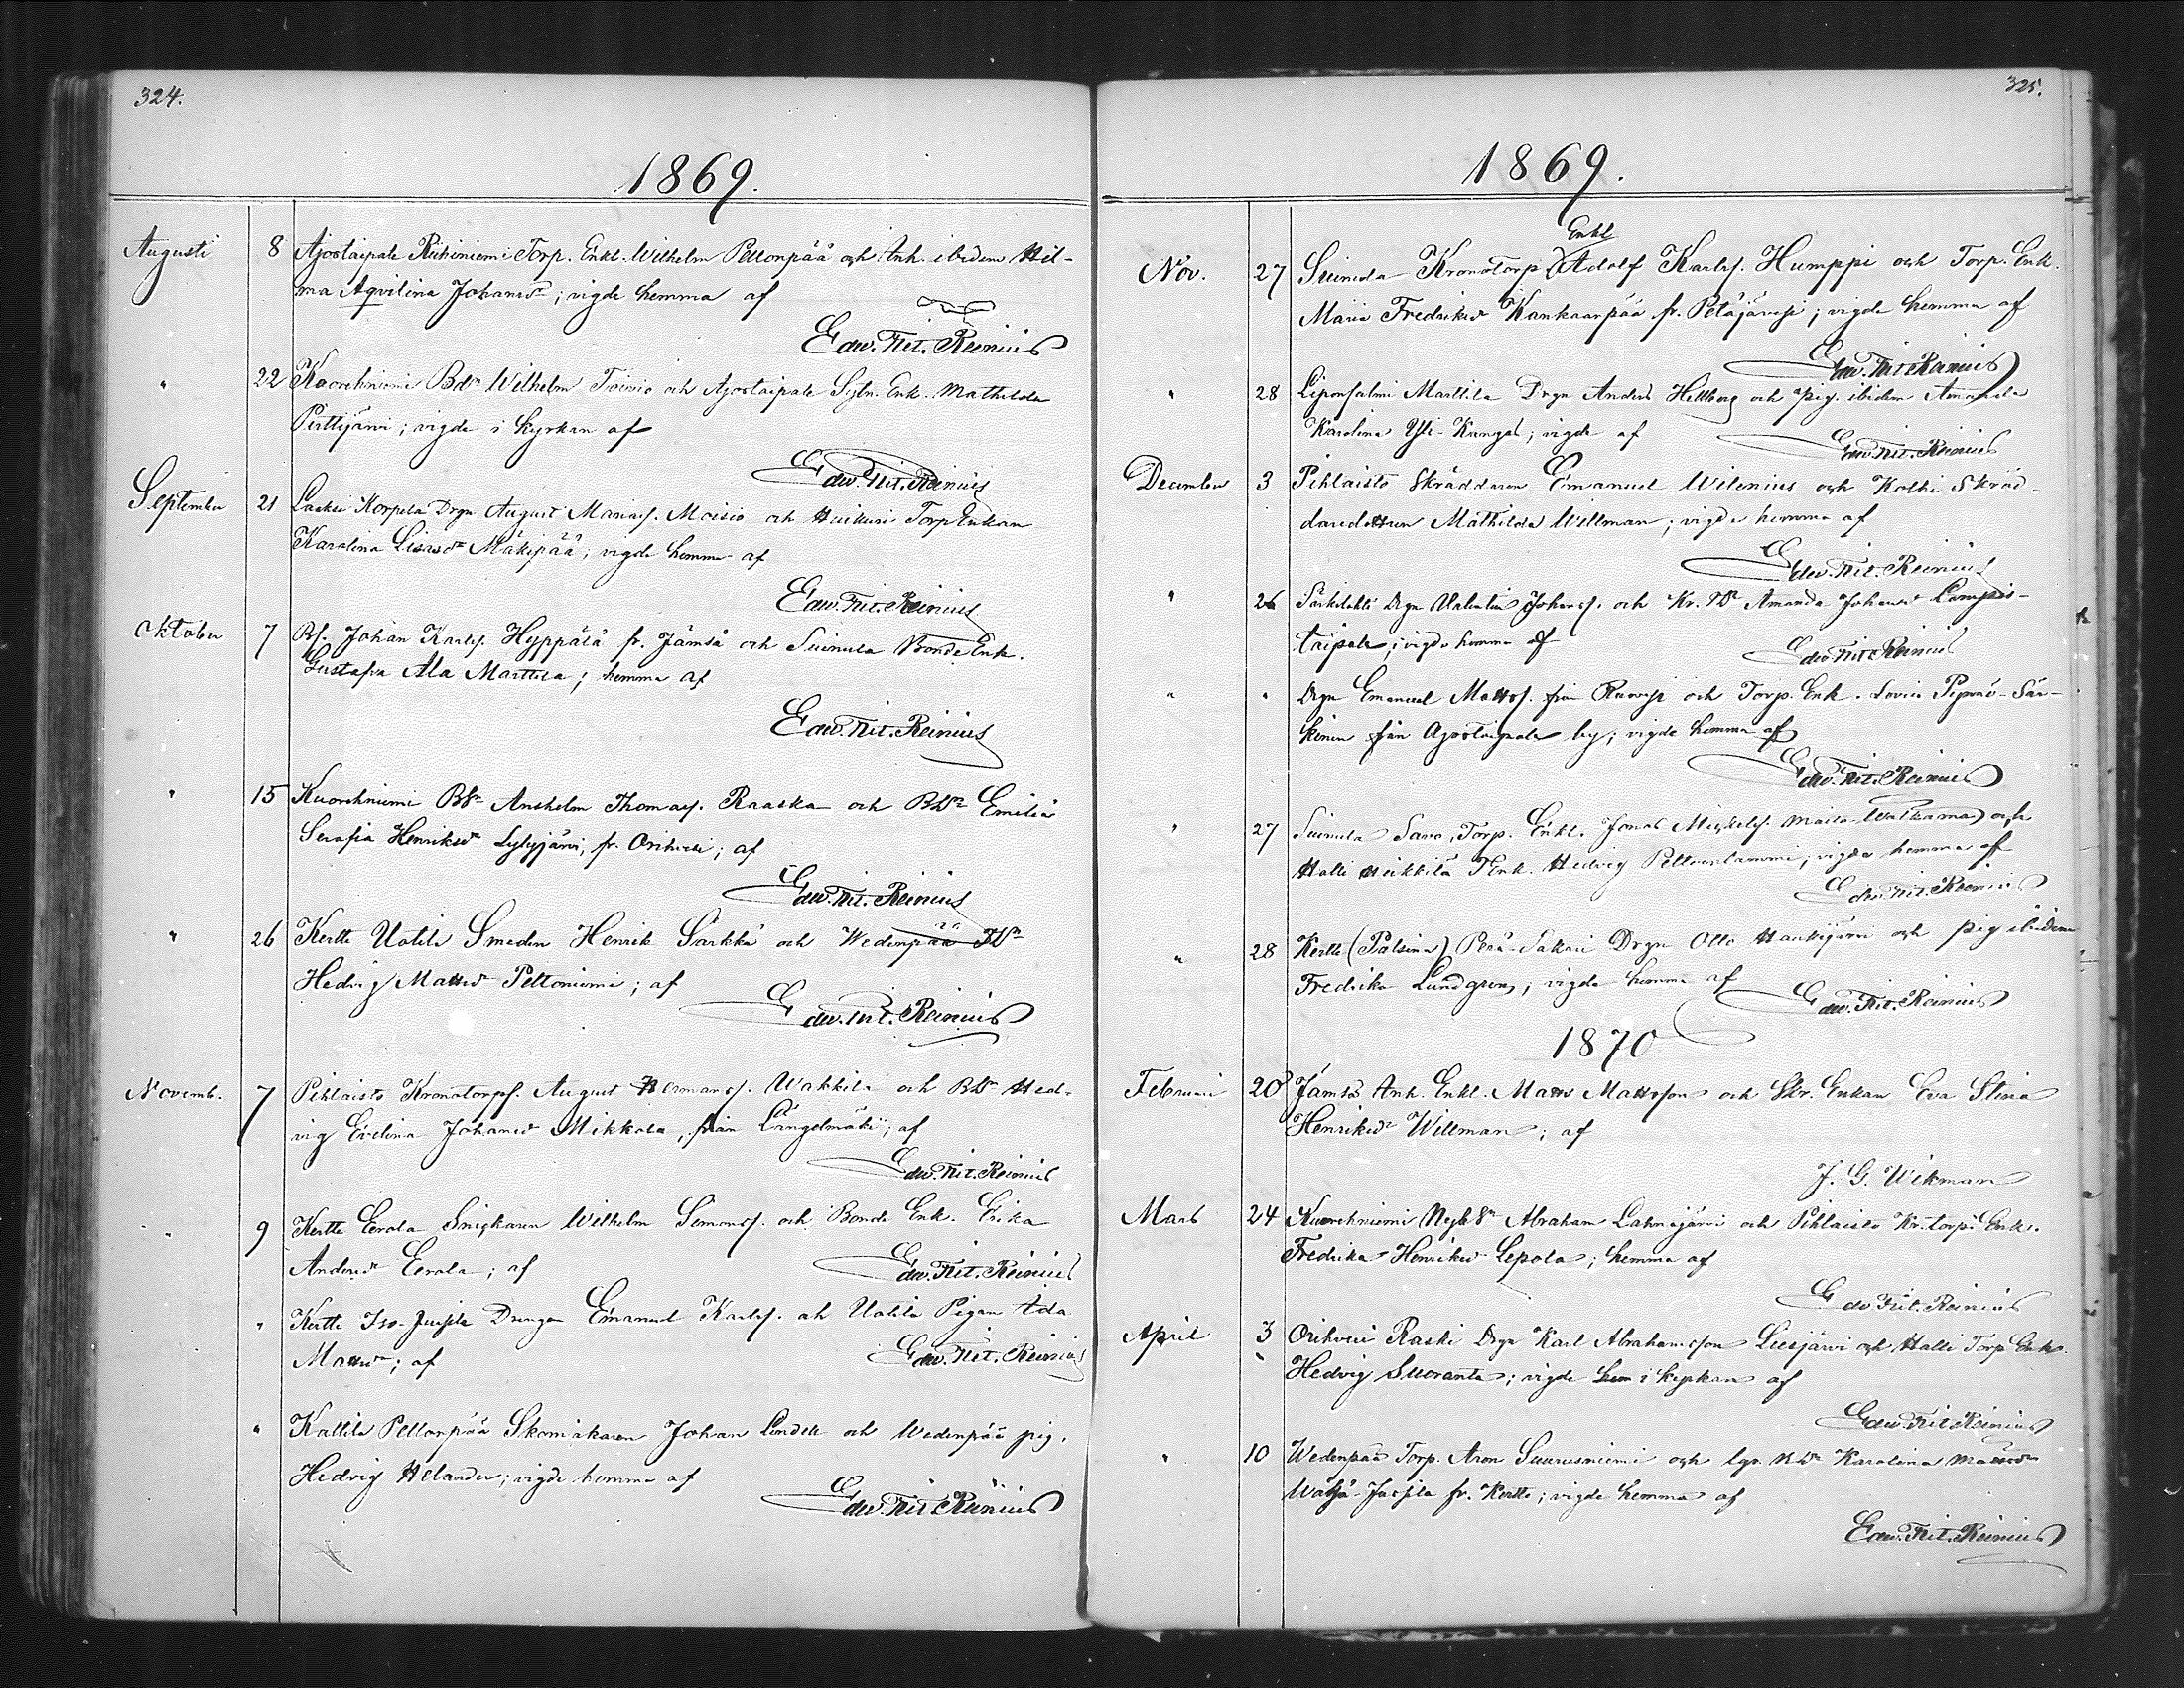 324.
1869.
Augusti 8 Ajostaipale Riihiniemi Torp. Enkl. Wilhelm Peltonpää och Inh. ibidem Hil-
ma Aqvilina Johansdr; vigde hemma af
Edw. Frit. Reinius
" 22 Kuorehniemi Bdr Wilhelm Toivio och Ajostaipale Sytn. Enk. Mathilda
Perttijärvi; vigde i kyrkan af
Edw. Frit. Reinius
September 21 Korpela Drgn August Mariasf. Moisio och Torp Enkan
Karolina Mäkipää; vigde hemma af
Edw. Frit. Reinius
Oktober 7 Bs. Johan Karlsf. Hyppälä fr. Jämsä och Suinula Bonde Enk.
Gustafva Ala Marttila; hemma af
Edw. Frit. Reinius
" 15 Kuorehniemi Bsn Anshelm Thomasf. Raaska och Bdr Emilia
Serafia Henriksdr Lylyjärvi, fr. Orihvesi; af
Edw. Frit. Reinius
" 26 Kertte Uotila Smeden Henrik Särkkä och Wedenpää TDr
Hedvig Mattsdr Peltoniemi; af
Edw. Frit. Reinius
Novemb. 7 Pihlaisto Kronotorpf. August Hermansf. Wakkila och Bdr Hed-
vig Evelina Johansdr Mikkola, från Längelmäki; af
Edw. Frit. Reinius
" 9 Kertte Eerola Snickaren Wilhelm Simonsf. och Bonde Enk. Erika
Andersdr Eerola; af
Edw. Frit. Reinius
" Kertte Iso-Jussila Drengen Emanuel Karlsf. och Uotila Pigan Ada
Mattsdr; af
Edw. Frit. Reinius
" Kattila Peltonpää Skomakaren Johan Lindell och Wedenpää pig.
Hedvig Helander; vigde hemma af
Edw. Frit. Reinius
325.
1869.
Enkl
Nov. 27 Suinula Kronotorp. Adolf Karlsf. Humppi och Torp. Enk.
Maria Fredriksdr Kankaanpää fr. Petäjävesi; vigde hemma af
Edw. Frit. Reinius
" 28 Liponsalmi Marttila Drgn Anders Hellberg och pig. ibidem Amanda
Karolina Yli-Kangas; vigde af
Edw. Frit. Reinius
December 3 Pihlaisto Skräddaren Emanuel Wilenius och Kolhi Skräd-
daredottren Mathilda Willman; vigde hemma af
Edw. Frit. Reinius
" 26 Särkilahti Drgn Valentin Johansf. och Kr. TDr Amanda Johansdr Lampis-
taipale; vigde hemma af
Edw. Frit. Reinius
" " Drgn Emanuel Mattsf. från Ruovesi och Torp. Enk. Lovisa Sär-
kinen från Ajostaipale by; vigde hemma af
Edw. Frit. Reinius
" 27 Suinula Savo, Torp. Enkl. Jonas Mickelsf. Walkama och
Halli Heikkilä TEnk. Hedvig Peltoenlammi; vigde hemma af
Edw. Frit. Reinius
" 28 Kertte (Palsina) Perä-Sakari Drgn Otto Haukijärvi och pig ibidem
Fredrika Lundgren; vigde hemma af
Edw. Frit. Reinius
1870
Februari 20 Jämsä Inh. Enkl. Matts Mattsson och Skr. Enkan Eva Stina
Henriksdr Willman; af
J. G. Wikman
Mars 24 Kuorehniemi Abraham Lahnajärvi och Pihlaisto Kr. torp. Enk.
Fredrika Henriksdr Lepola; hemma af
Edw. Frit. Reinius
April 3 Orihvesi Raski Drgn Karl Abrahamsson Liesjärvi och Halli Torp Enk.
Hedvig Suoranta; vigde i kyrkan af
Edw. Frit. Reinius
" 10 Wedenpää Torp. Aron Suurusniemi och Karolina Mattsdr
Wähä-Jussila fr. Kertte; vigde hemma af
Edw. Frit. Reinius